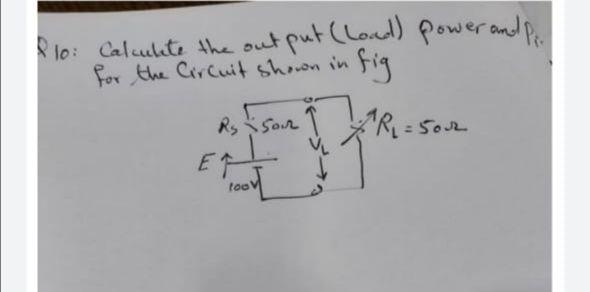 Q10: Calculate the output (Load) power and Pi.
for the Circuit shown in fig
Rs 50Ω
VL
RL = 50Ω
E
100V